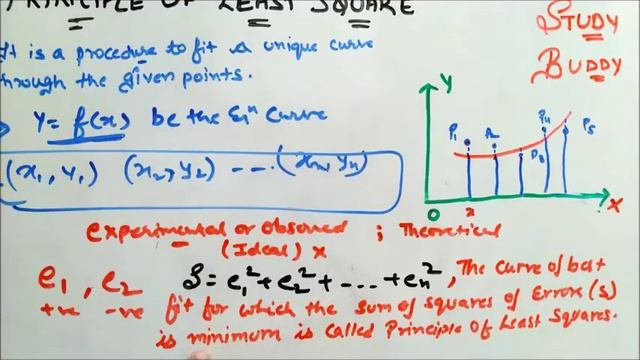 PRINCIPLE OF LEAST SQUARE
STUDY
BUDDY
It is a procedure to fit a unique curve
through the given points.
Y = f(x) be the Eqn curve
(x1, y1) (x2, y2) --- (xn, yn)
Y
P1 P2 P3 P4 P5
O x X
experimental or observed ; Theoretical
(Ideal) x
e1, e2 S = e1² + e2² + ... + en², The curve of best
+ve -ve fit for which the sum of squares of Errors (s)
is minimum is called Principle of Least Squares.